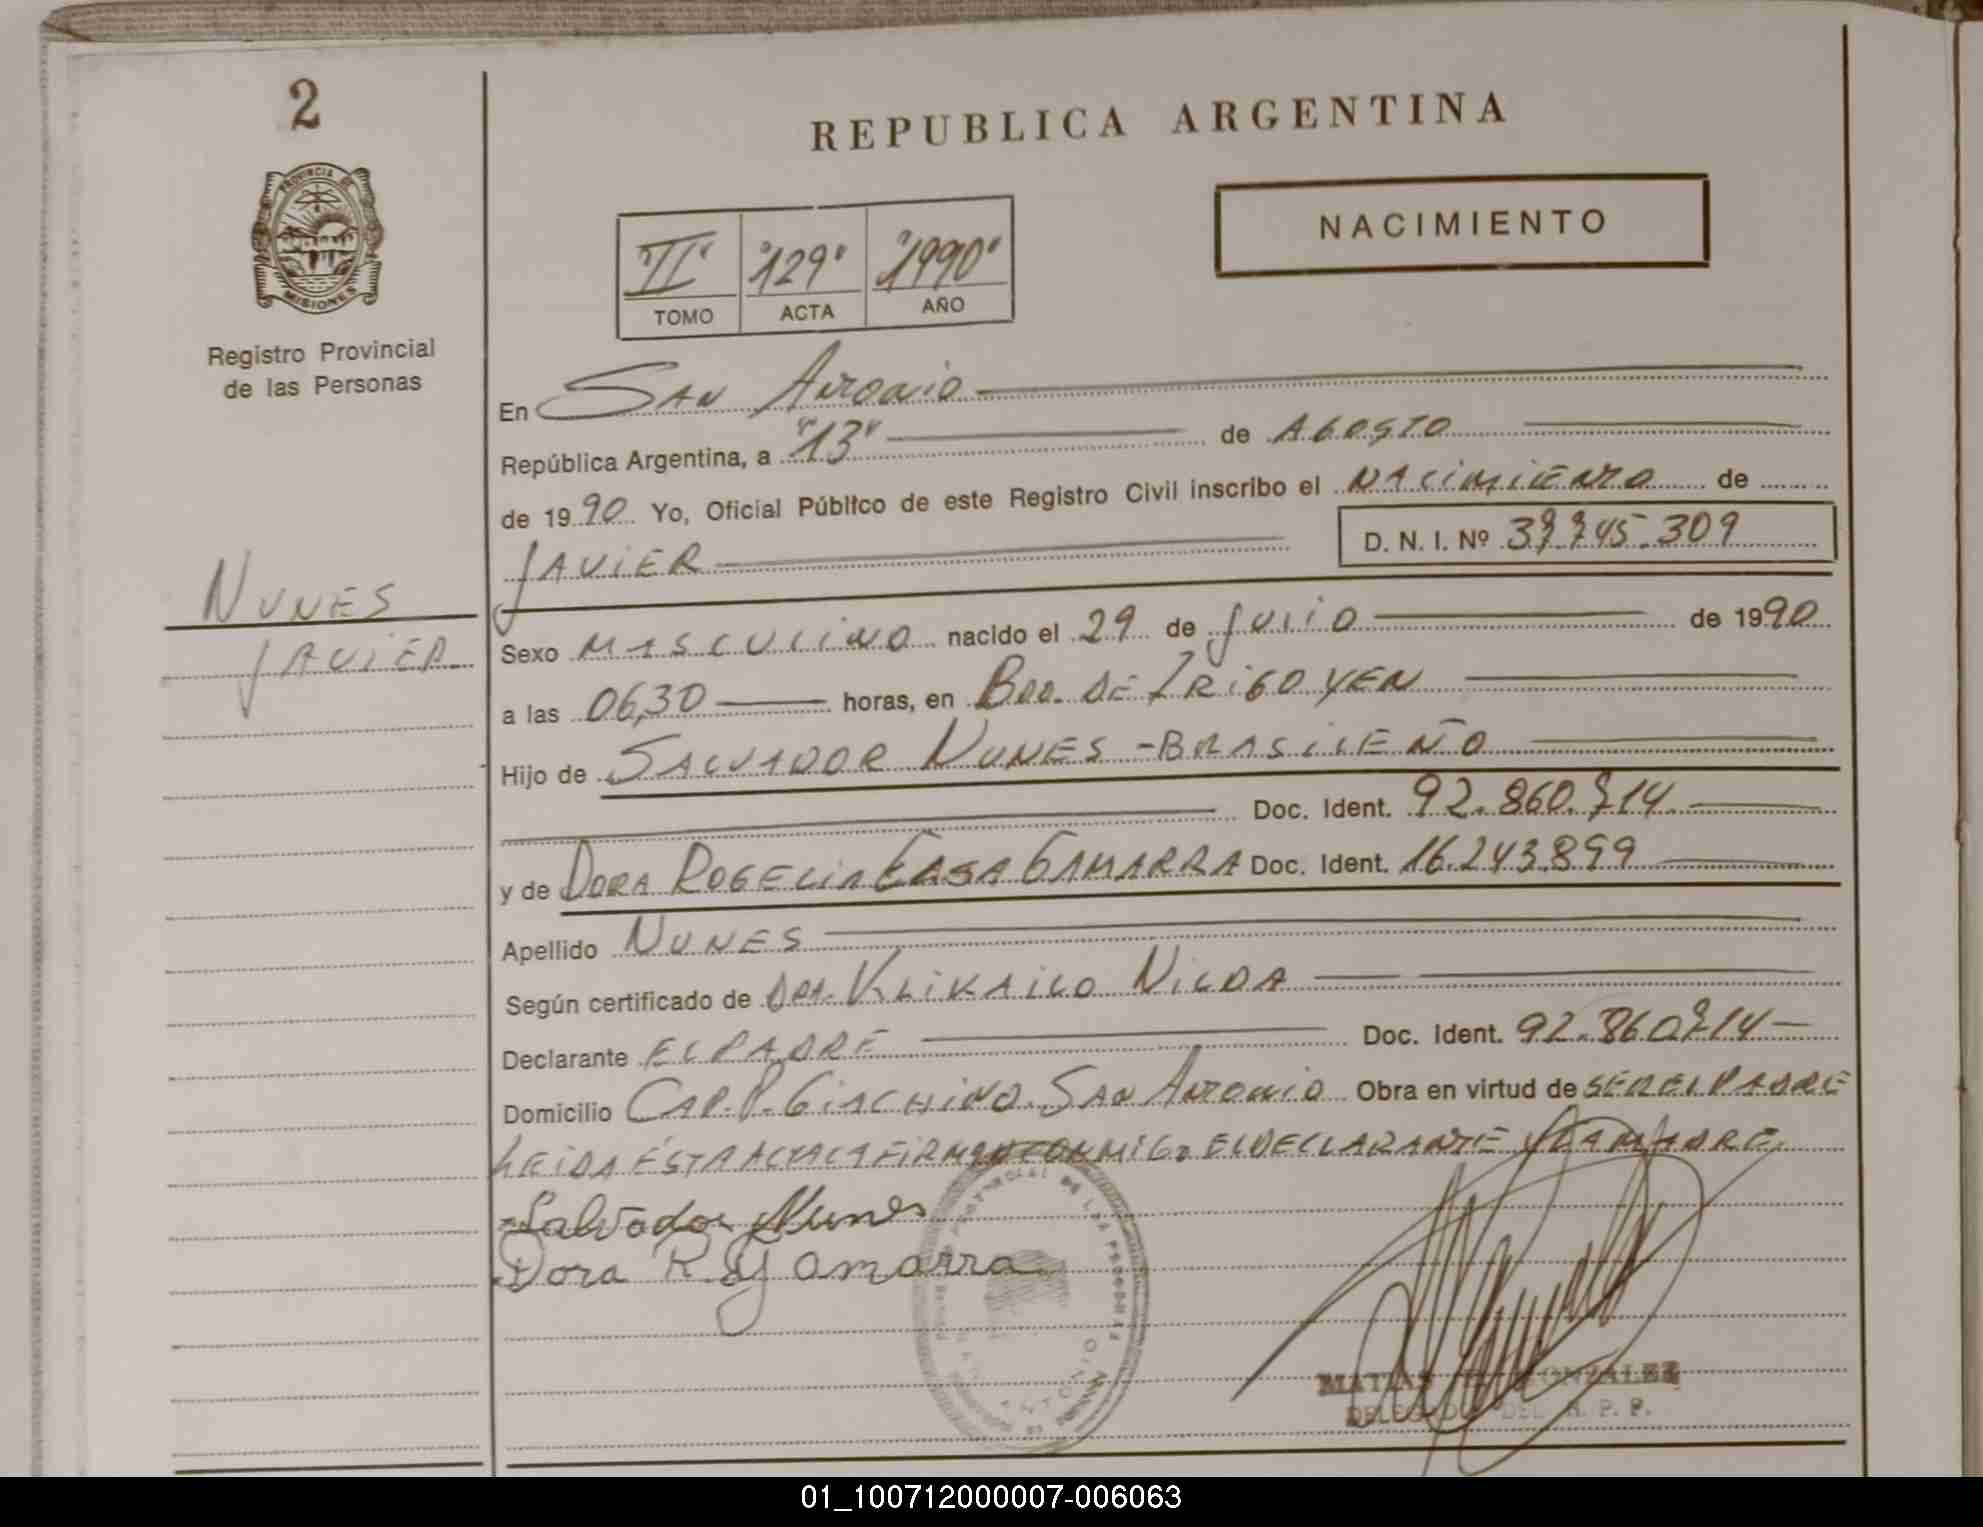 2
REPUBLICA ARGENTINA
PROVINCIA DE
MISIONES
NACIMIENTO
"II" "129" "1990"
TOMO ACTA AÑO
Registro Provincial
de las Personas
En San Antonio
República Argentina, a "13" de Agosto
de 1990 Yo, Oficial Público de este Registro Civil inscribo el Nacimiento de
Javier D. N. I. Nº 37.745.309
Nunes
Javier
Sexo Masculino nacido el 29 de Julio de 1990
a las 06,30 horas, en Bdo. de Irigoyen
Hijo de Salvador Nunes - Brasileño
Doc. Ident. 92.860.714
y de Dora Rogelia Gamarra Doc. Ident. 16.243.899
Apellido Nunes
Según certificado de Dra. Klikailo Nilda
Declarante El Padre Doc. Ident. 92.860714
Domicilio Cap. P. Giachino. San Antonio Obra en virtud de ser el Padre
Leida ésta acta la firman conmigo el declarante y la Madre
Salvador Nunes
Dora R. Gamarra
GONZALEZ
DELEGADO DEL R. P. P.
01_100712000007-006063